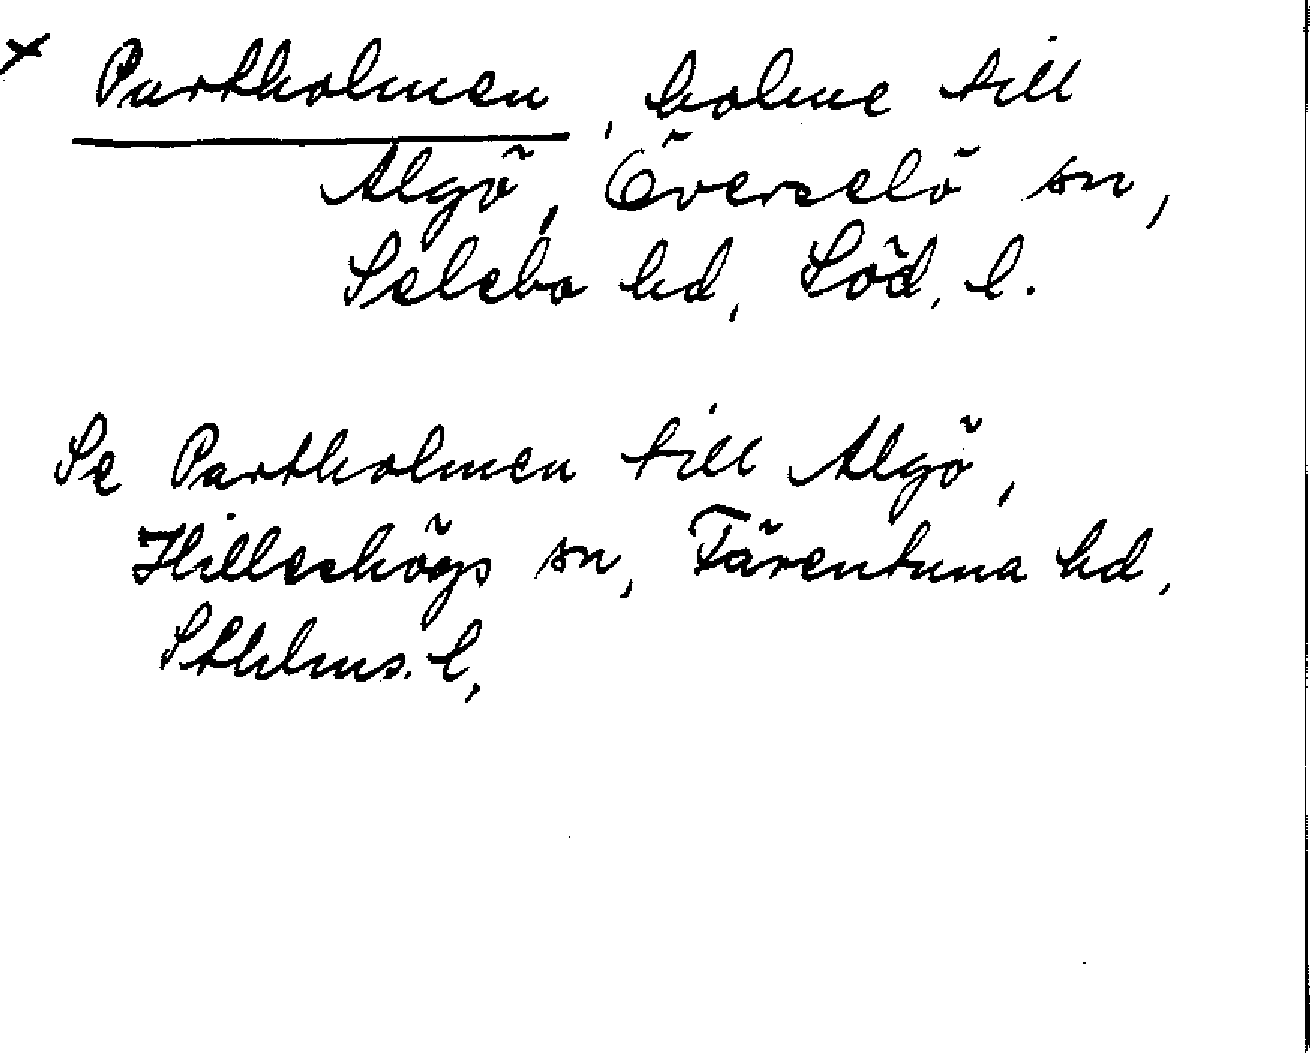 x Partholmen, holme till
Algö, Överselö sn,
Selebo hd, Söd. l.
Se Partholmen till Algö,
Hilleshögs sn, Färentuna hd,
Sthlms. l,